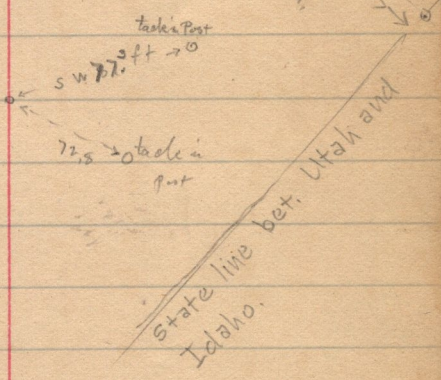 tack in Post
ft
72.8
tack in
Post
State line bet. Utah and
Idaho.